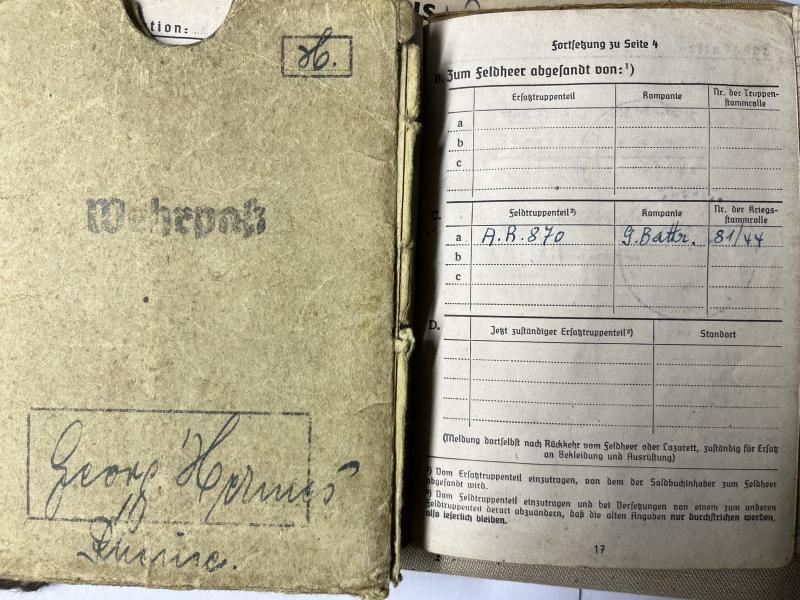 tion:
H.
Wehrpaß
Georg Hermes
Fortsetzung zu Seite 4
B. Zum Feldheer abgesandt von:¹)
Ersatztruppenteil Kompanie Nr. der Truppen-
stammrolle
a
b
c
C. Feldtruppenteil²) Kompanie Nr. der Kriegs-
stammrolle
a A.R. 870 9. Battr. 81/44
b
c
D. Jetzt zuständiger Ersatztruppenteil²) Standort
(Meldung dortselbst nach Rückkehr vom Feldheer oder Lazarett, zuständig für Ersatz
an Bekleidung und Ausrüstung)
¹) Vom Ersatztruppenteil einzutragen, von dem der Soldbuchinhaber zum Feldheer
abgesandt wird.
²) Vom Feldtruppenteil einzutragen und bei Versetzungen von einem zum anderen
Feldtruppenteil derart abzuändern, daß die alten Angaben nur durchstrichen werden,
also leserlich bleiben.
17